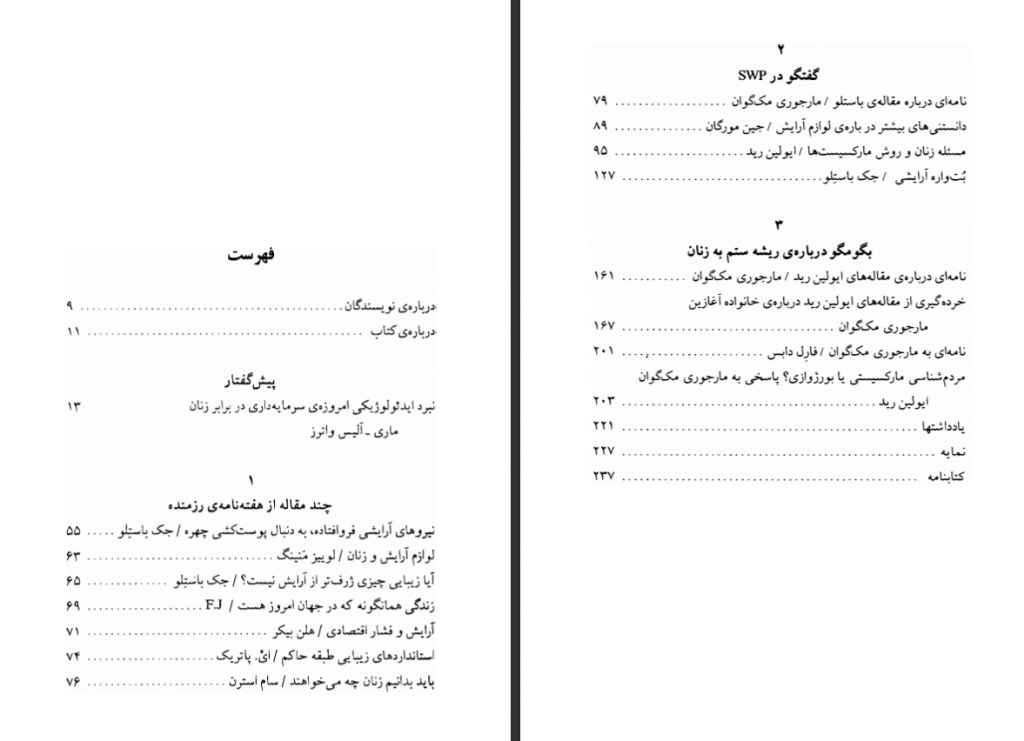 فهرست
درباره‌ی نویسندگان ........................................... ۹
درباره‌ی کتاب ........................................... ۱۱
پیش‌گفتار
نبرد ایدئولوژیکی امروزه‌ی سرمایه‌داری در برابر زنان ۱۳
ماری ـ آلیس واترز
۱
چند مقاله از هفته‌نامه‌ی رزمنده
نیروهای آرایشی فروافتاده، به دنبال پوست‌کشی چهره / جک باستِلو ..... ۵۵
لوازم آرایش و زنان / لوییز مَنینگ ............................... ۶۳
آیا زیبایی چیزی ژرف‌تر از آرایش نیست؟ / جک باستِلو ............. ۶۵
زندگی همانگونه که در جهان امروز هست / F.J ................... ۶۹
آرایش و فشار اقتصادی / هلن بیکر .............................. ۷۱
استانداردهای زیبایی طبقه حاکم / ائ. پاتریک ..................... ۷۴
باید بدانیم زنان چه می‌خواهند / سام استرن ....................... ۷۶
۲
گفتگو در SWP
نامه‌ای درباره مقاله‌ی باستلو / مارجوری مک‌گوان ................... ۷۹
دانستنی‌های بیشتر در باره‌ی لوازم آرایش / جین مورگان ............... ۸۹
مسئله زنان و روش مارکسیست‌ها / ایولین رید ..................... ۹۵
بُت‌واره آرایشی / جک باستِلو ................................. ۱۲۷
۳
بگومگو درباره‌ی ریشه ستم به زنان
نامه‌ای درباره‌ی مقاله‌های ایولین رید / مارجوری مک‌گوان ........... ۱۶۱
خرده‌گیری از مقاله‌های ایولین رید درباره‌ی خانواده آغازین
مارجوری مک‌گوان ................................... ۱۶۷
نامه‌ای به مارجوری مک‌گوان / فارِل دابس ....................... ۲۰۱
مردم‌شناسی مارکسیستی یا بورژوازی؟ پاسخی به مارجوری مک‌گوان
ایولین رید .......................................... ۲۰۳
یادداشتها ................................................. ۲۲۱
نمایه .................................................... ۲۲۷
کتابنامه ................................................. ۲۳۷